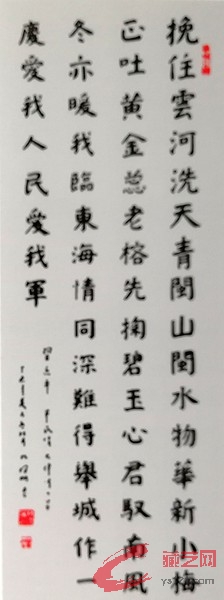 挽住雲河洗天青閩山閩水物華新小梅
正吐黄金蕊老榕先掬碧玉心君馭南風
冬亦暖我臨東海情同深難得舉城作一
慶愛我人民愛我軍